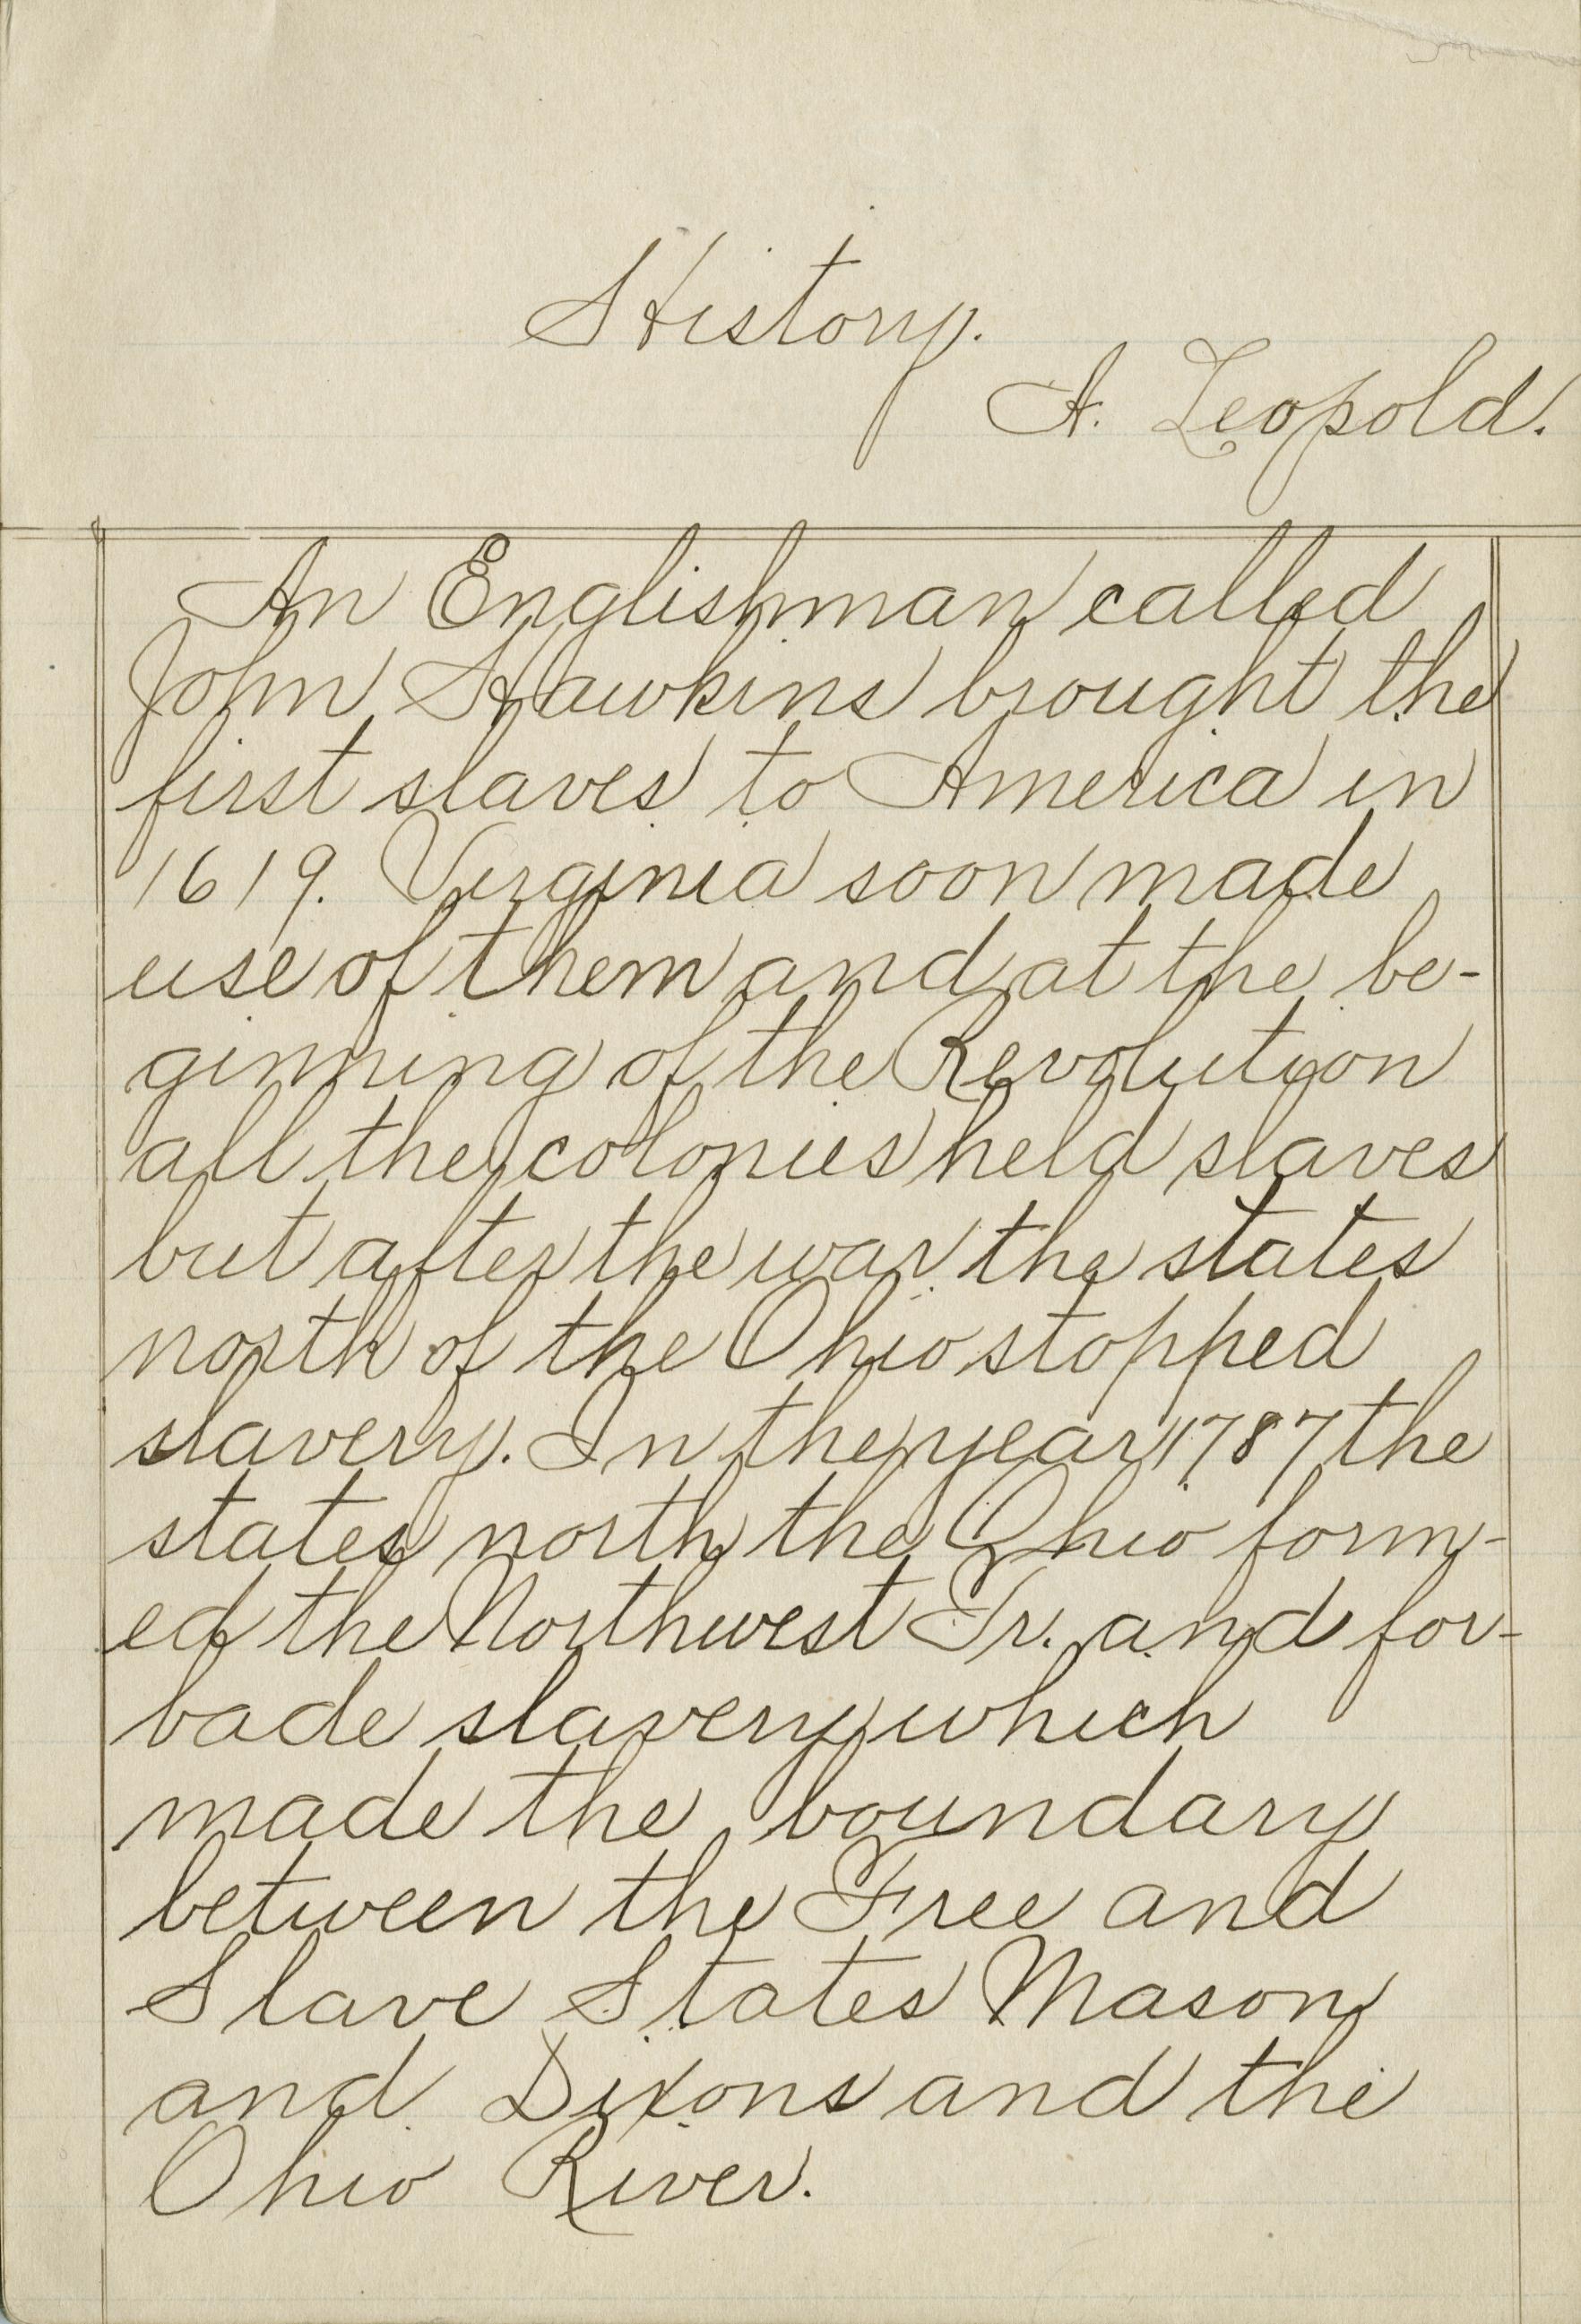 History.
A. Leopold.
An Englishman called
John Hawkins brought the
first slaves to America in
1619. Virginia soon made
use of them and at the be-
ginning of the Revolution
all the colonies held slaves
but after the war the states
north of the Ohio stopped
slavery. In the year 1787 the
states north the Ohio form-
ed the Northwest Tr. and for-
bade slavery which
made the boundary
between the Free and
Slave States Mason
and Dixons and the
Ohio River.